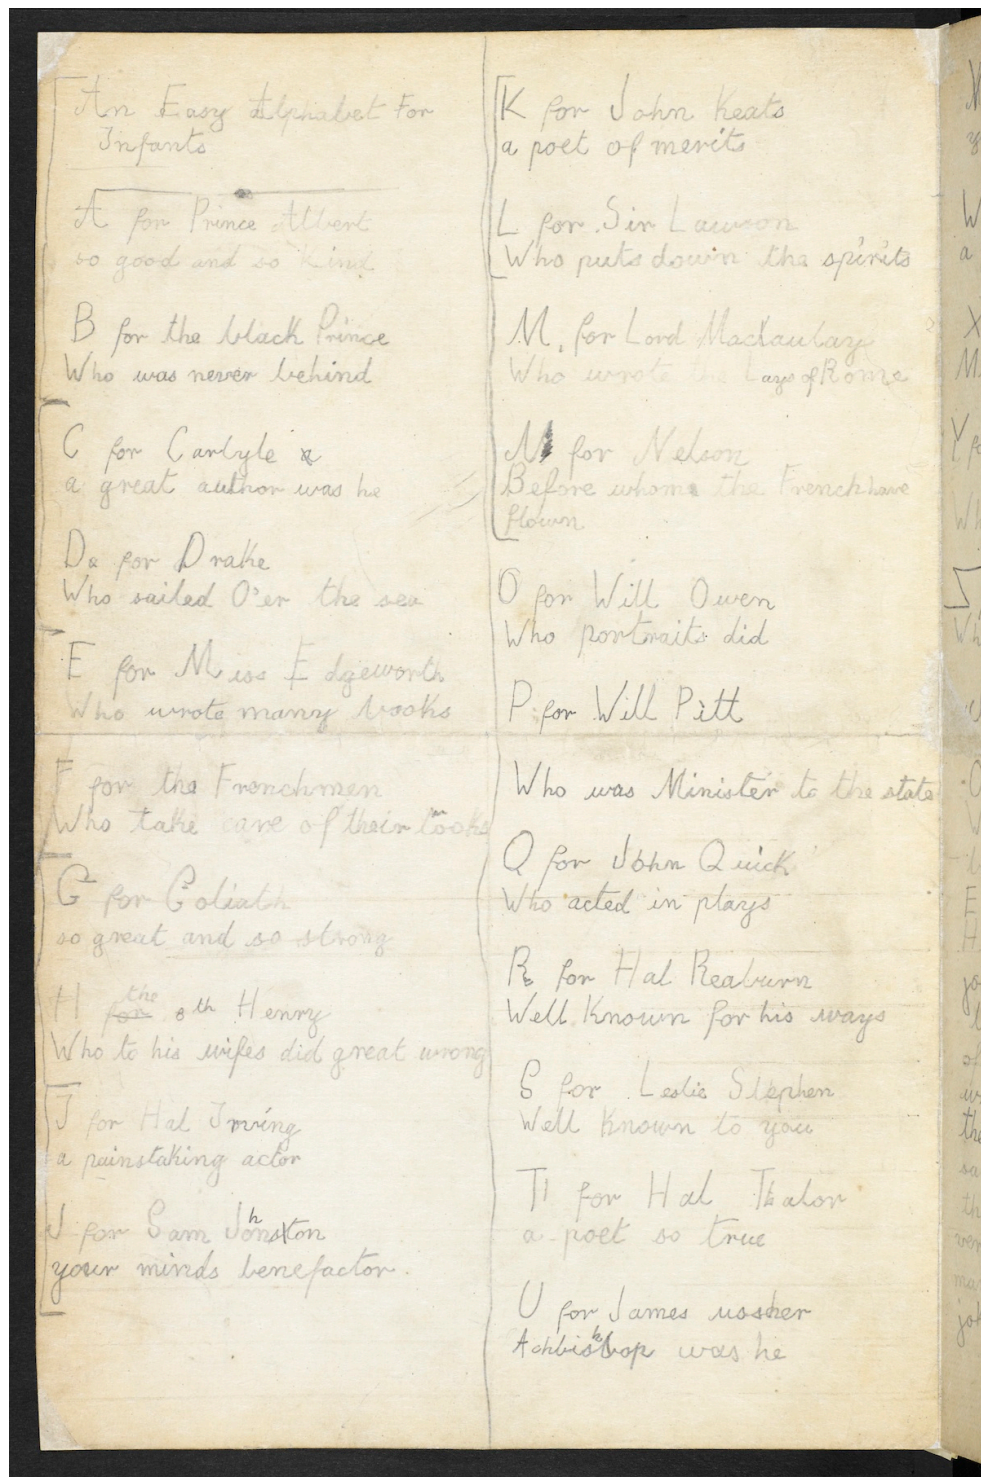 An Easy Alphabet For
Infants
A for Prince Albert
so good and so kind
B for the black Prince
Who was never behind
C for Carlyle
a great author was he
D for Drake
Who sailed O'er the sea
E for Miss Edgeworth
Who wrote many books
F for the Frenchmen
Who take care of their looks
G for Goliath
so great and so strong
H for the 8th Henry
Who to his wifes did great wrong
I for Hal Irving
a painstaking actor
J for Sam Jonhston
your minds benefactor.
K for John Keats
a poet of merits
L for Sir Lawson
Who puts down the spirits
M. for Lord Macaulay
Who wrote the Lays of Rome
N for Nelson
Before whom the French have
flown
O for Will Owen
Who portraits did
P for Will Pitt
Who was Minister to the state
Q for John Quick
Who acted in plays
R for Hal Reaburn
Well Known for his ways
S for Leslie Stephen
Well Known to you
T for Hal Talor
a poet so true
U for James ussher
Achbishop was he